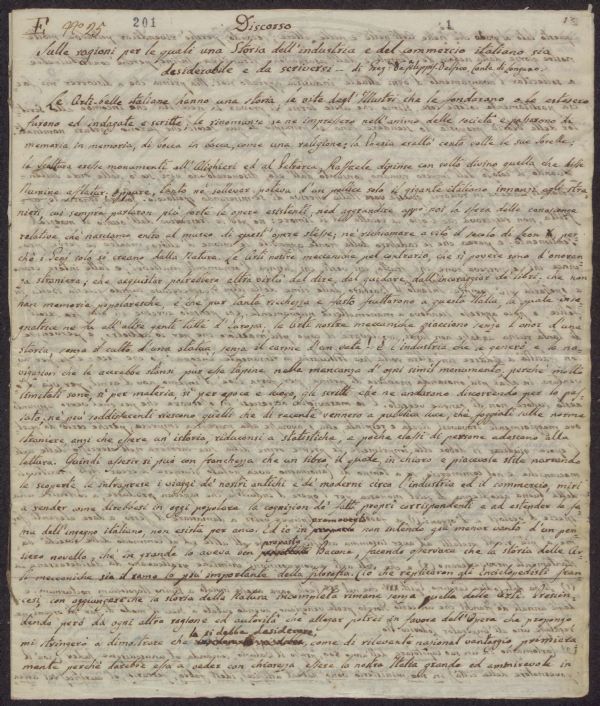 F nº 25 201 Discorso 1
Sulle ragioni per le quali una Storia dell'industria e del commercio italiano sia
desiderabile e da scriversi - di Greg. De Filippis-Delfico Conte di Longano.
Le Arti-belle italiane hanno una storia, le vite degl'Illustri che le fondarono e le estesero
furono ed indagate e scritte, le ricordanze se ne impressero nell'animo delle società e passarono di
memoria in memoria, di bocca in bocca, come una religione; la Poesia esaltò cento volte le sue sorelle,
la scultura eresse monumenti all'Alighieri ed al Petrarca, Raffaele dipinse con volto divino quella che disse
Numine afflatur. Eppure, tanto ne sollevar poteva d'un pollice solo il gigante italiano innanzi agli stra-
nieri, cui sempre parlaron più forte le opere esistenti, ned aggrandire appo noi la sfera delle conoscenze
relative che nasciamo entro al museo di quest'opere stesse, ne richiamare a vita il secolo di Leon X, per
che i Genj solo si creano dalla Natura. Le Arti nostre meccaniche pel contrario, che sì povere sono d'onoran-
za straniera, che acquistar potrebbero altra virtù del dire, dei guidare, dall'incoraggiar de' libri, che non
han memorie popolaresche, e che pur tante ricchezze e fasto fruttarono a questa Italia, la quale inse-
gnatrice ne fu all'altre genti tutte d'Europa, le Arti nostre meccaniche giacciono senza l'onor d'una
storia, senza il culto d'una statua, senza il carme d'un vate! E l'industria che le generò e la na-
vigazion che le avrebbe stansi pur esse tapine nella mancanza d'ogni simil monumento, perchè molto
limitati sono, o per materia, o per epoca e luogo, gli scritti che ne andarono discorrendo per lo pas-
sato, nè più soddisfacenti riescono quelli che di recente vennero a pubblica luce, chè foggiati sulle norme
straniere, anzi che essere un'istoria, riduconsi a statistiche, e poche classi di persone adescano alla
lettura. Quindi asserir si può con franchezza che un libro il quale, in chiaro e piacevole stile narrando
le scoperte le intraprese i viaggi de' nostri antichi e de' moderni circa l'industria ed il commercio, miri
a render come direbbesi in oggi popolare la cognizion de' fatti proprj corrispondenti e ad estender la fa-
ma dell'ingegno italiano non esista per anco. Ed io in promoverlo non intendo già menar vanto d'un pen-
siero novello, che in grande lo aveva ben proposto Bacone, facendo osservare che la storia delle Ar-
ti meccaniche sia il ramo lo più importante della filosofia. Ciò che replicaron gli Enciclopedisti fran-
cesi, con aggiungere che la storia della Natura incompleta rimane senza quella delle Arti. Prescin-
dendo però da ogni altra ragione ed autorità che allegar potrei in favore dell'Opera che propongo
mi stringerò a dimostrare che la si debba desiderare, come di ricevente nazional vantaggio, primiera-
mente perchè sarebbe essa a veder con chiarezza essere la nostra Italia grande ed ammirevole in